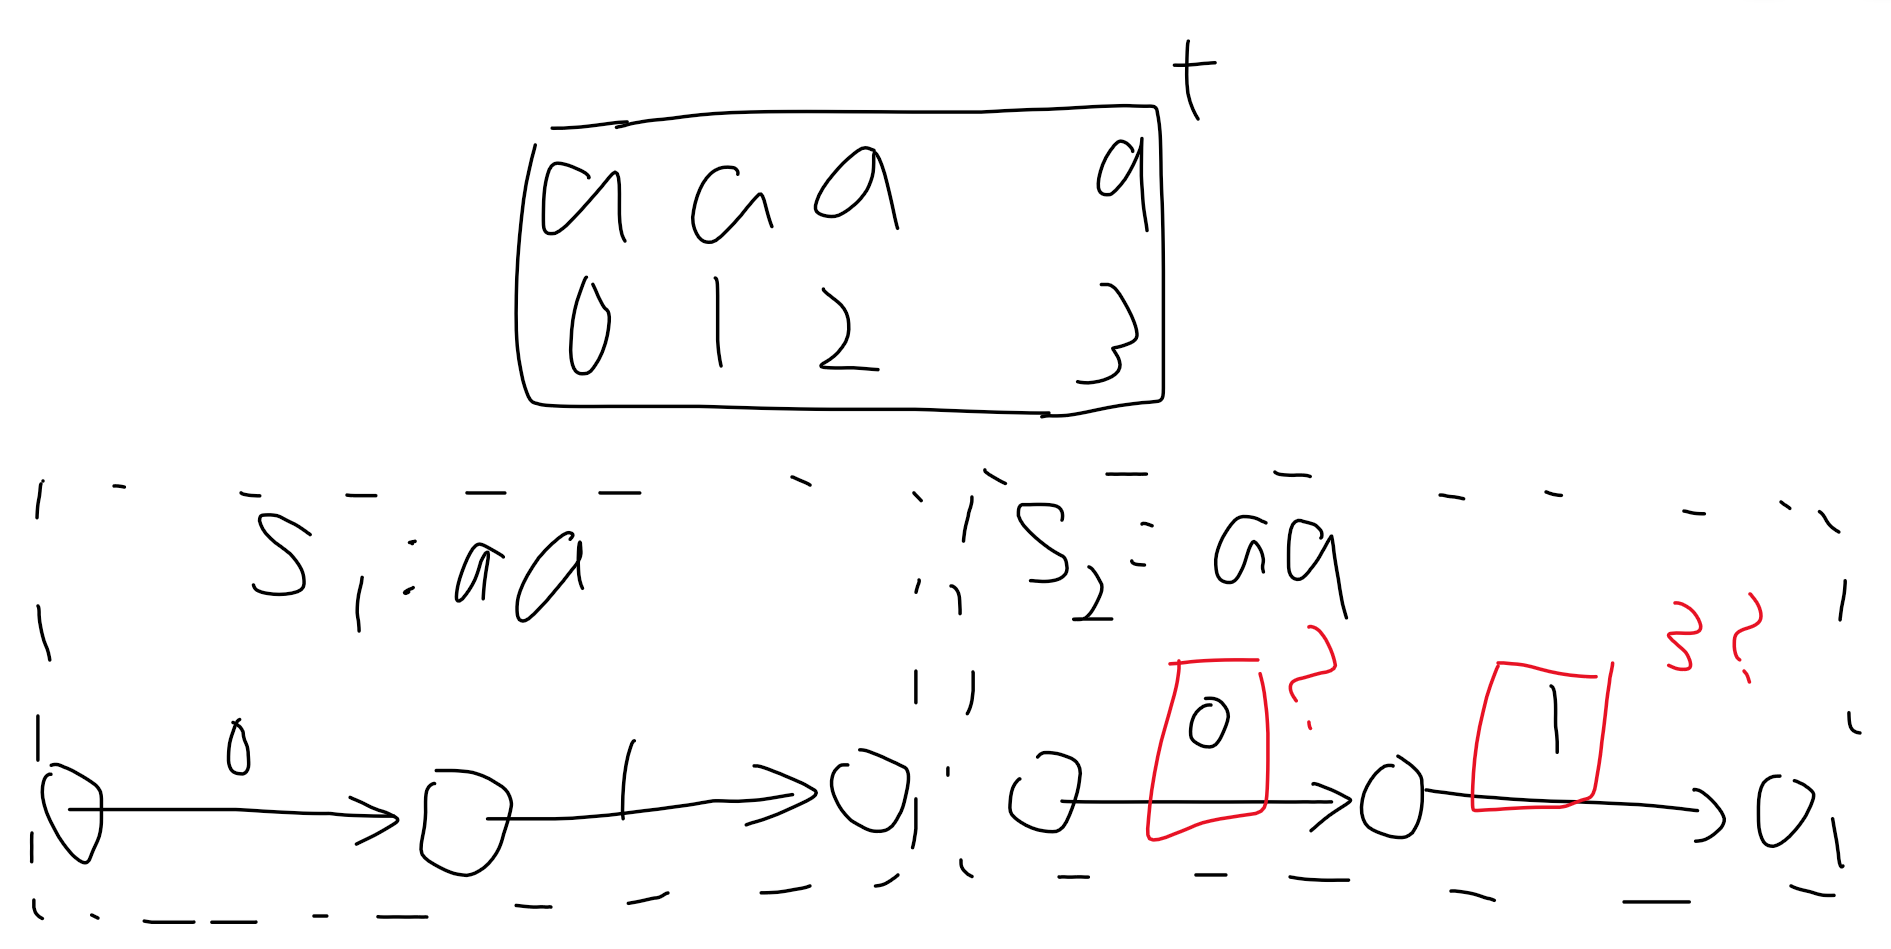 t
a a a a
0 1 2 3
S1: aa
0 1
S2: aa
0 ? 1 3?